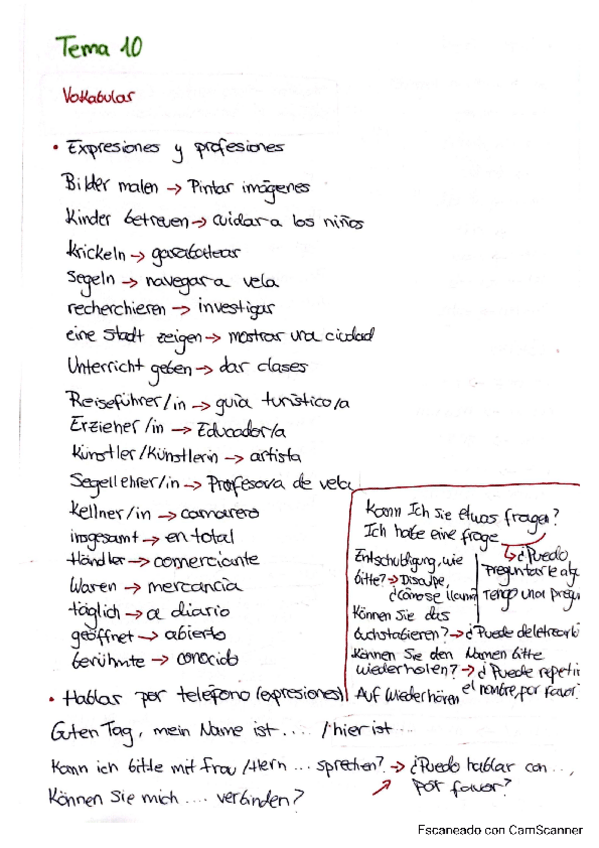 Tema 10
Vokabular
• Expresiones y profesiones
Bilder malen → Pintar imágenes
Kinder betreuen → cuidar a los niños
krickeln → garabatear
Segeln → navegar a vela
recherchieren → investigar
eine Stadt zeigen → mostrar una ciudad
Unterricht geben → dar clases
Reiseführer/in → guía turístico/a
Erzieher/in → Educador/a
Künstler/Künstlerin → artista
Segellehrer/in → Profesor/a de vela
Kellner/in → camarero
insgesamt → en total
Händler → comerciante
Waren → mercancía
täglich → a diario
geöffnet → abierto
berühmte → conocido
Kann Ich Sie etwas fragen?
Ich habe eine frage
→ ¿Puedo
Preguntarle alg
Tengo una pregun
Entschuldigung, wie
bitte? → Disculpe,
¿cómo se llama
Können Sie das
buchstabieren? → ¿Puede deletrearlo
Können Sie den Namen bitte
wiederholen? → ¿Puede repetir
el nombre, por favor?
Auf Wiederhören
• Hablar por teléfono (expresiones)
Guten Tag, mein Name ist .... / hier ist ...
Kann ich bitte mit frau/Hern ... sprechen? → ¿Puedo hablar con ...,
por favor?
Können Sie mich .... verbinden?
Escaneado con CamScanner